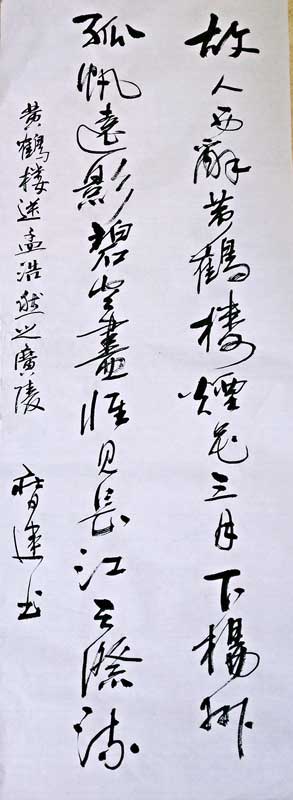 故人西辭黄鶴楼煙花三月下楊州
孤帆遠影碧空盡惟見長江天際流
黄鶴楼送孟浩然之廣陵
建书